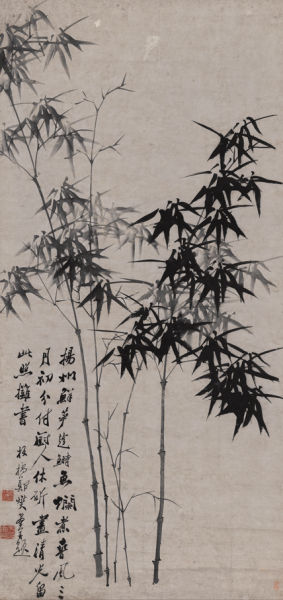 揚州鮮笋趁鰣魚爛煮春風三
月初分付厨人休斫盡清光留
此照攤書 板橋鄭燮